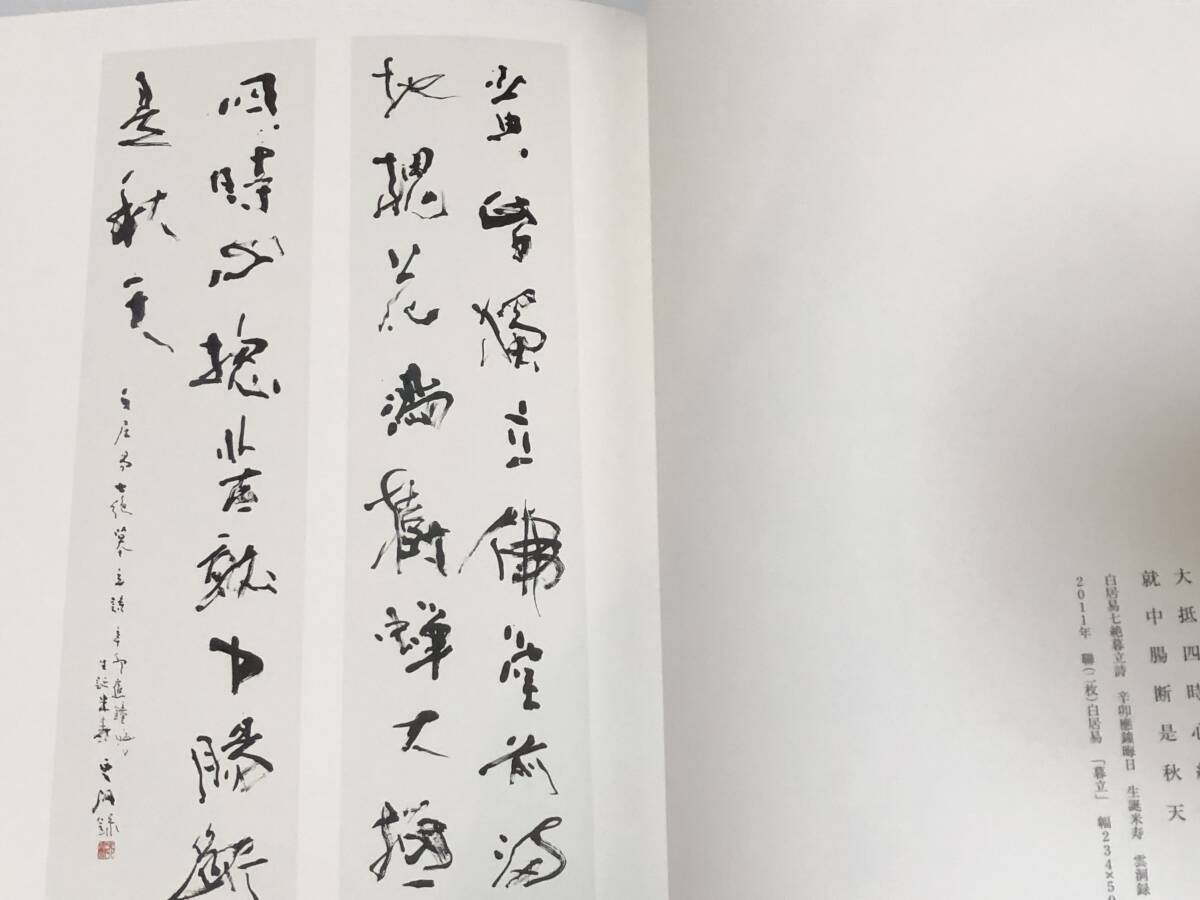 大抵四時心
就中腸断是秋天
白居易七絶暮立詩　辛卯應鐘晦日　生誕米寿　雲洞録
2011年　聯(二枚)白居易　「暮立」　幅234×50
黄昏獨立佛堂前満
地槐花満樹蝉大抵
四時心揔苦就中腸斷
是秋天
白居易七絶暮立詩 辛卯應鐘晦日
生誕米寿 雲洞録